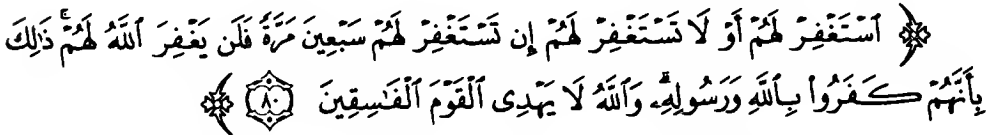 ﴿ ٱسۡتَغۡفِرۡ لَهُمۡ أَوۡ لَا تَسۡتَغۡفِرۡ لَهُمۡ إِن تَسۡتَغۡفِرۡ لَهُمۡ سَبۡعِينَ مَرَّةٗ فَلَن يَغۡفِرَ ٱللَّهُ لَهُمۡۚ ذَٰلِكَ
بِأَنَّهُمۡ كَفَرُواْ بِٱللَّهِ وَرَسُولِهِۦۗ وَٱللَّهُ لَا يَهۡدِي ٱلۡقَوۡمَ ٱلۡفَٰسِقِينَ ٨٠ ﴾